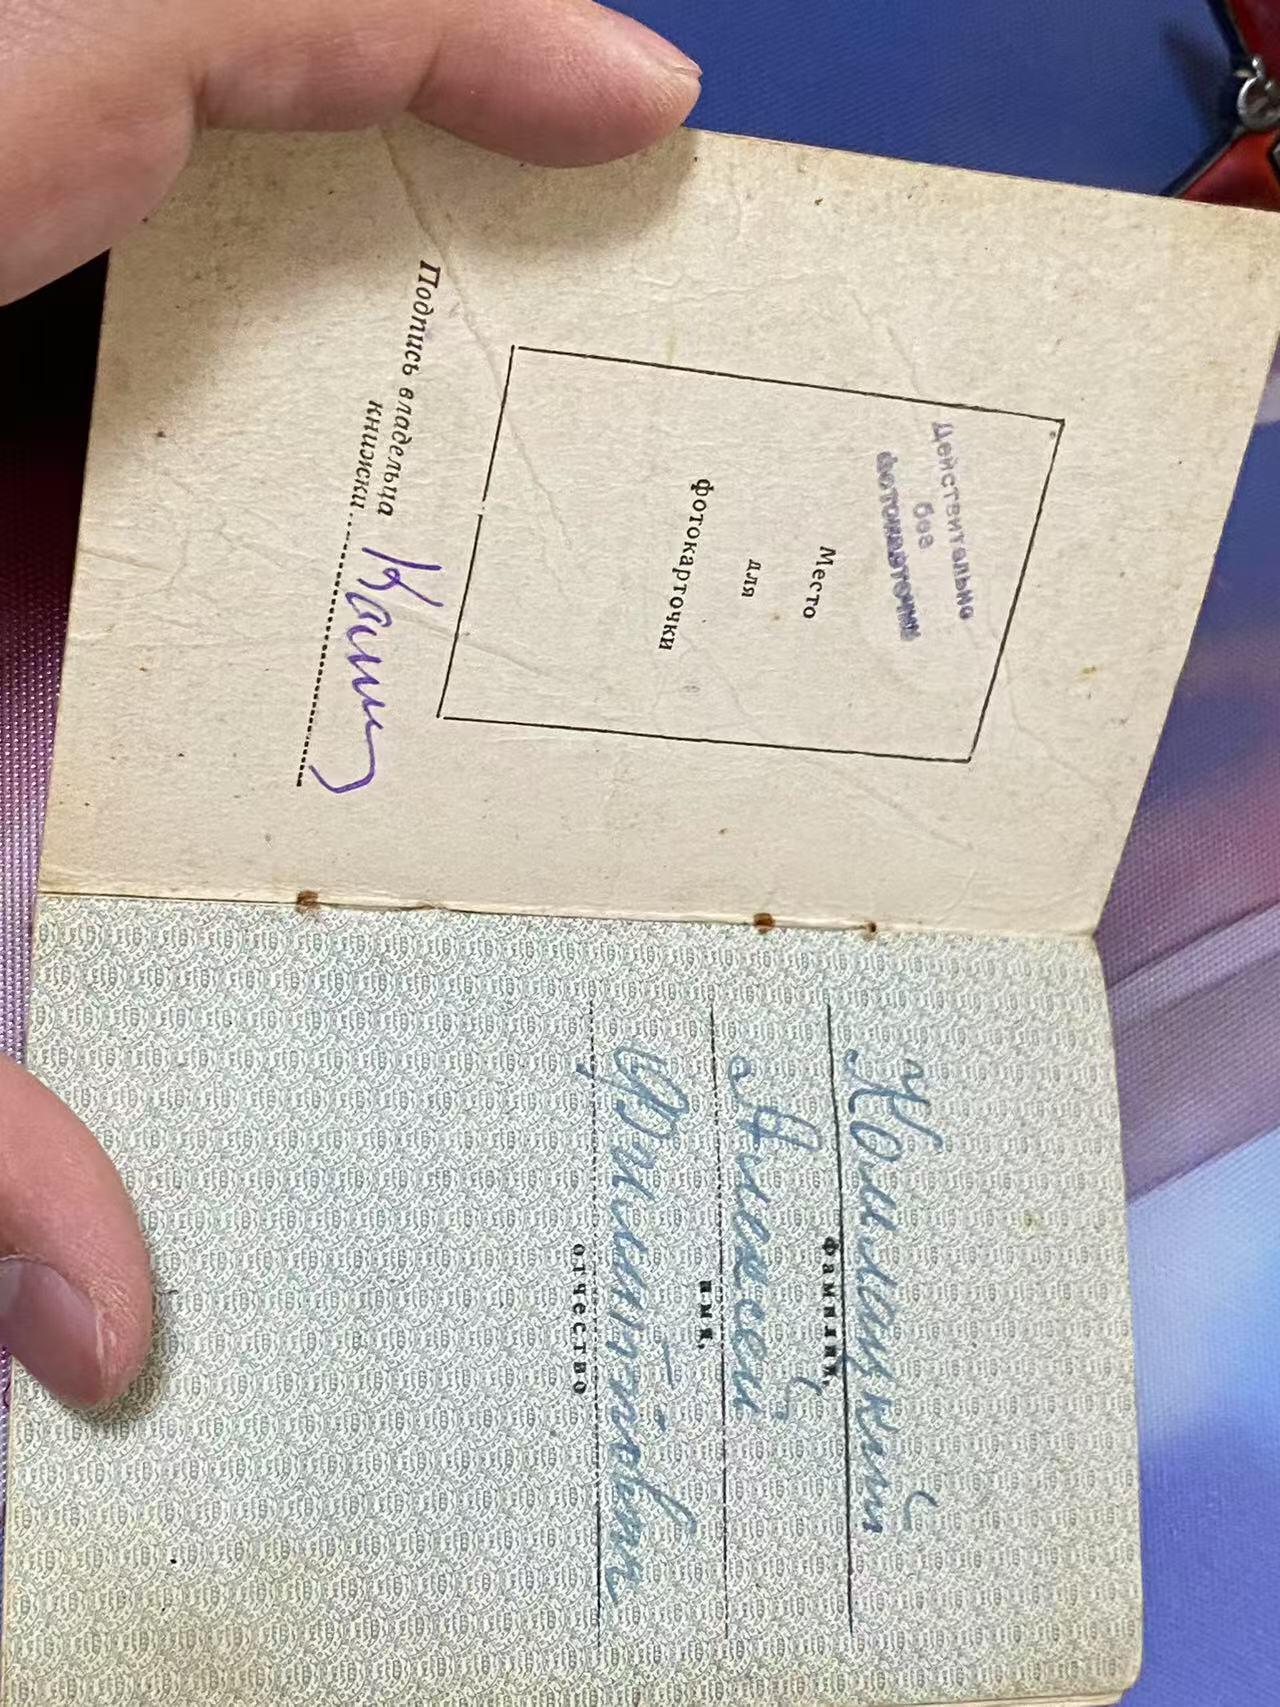 Действительно
без
фотокарточки
Место
для
фотокарточки
Подпись владельца
книжки
фамилия,
Алексей
имя,
отчество